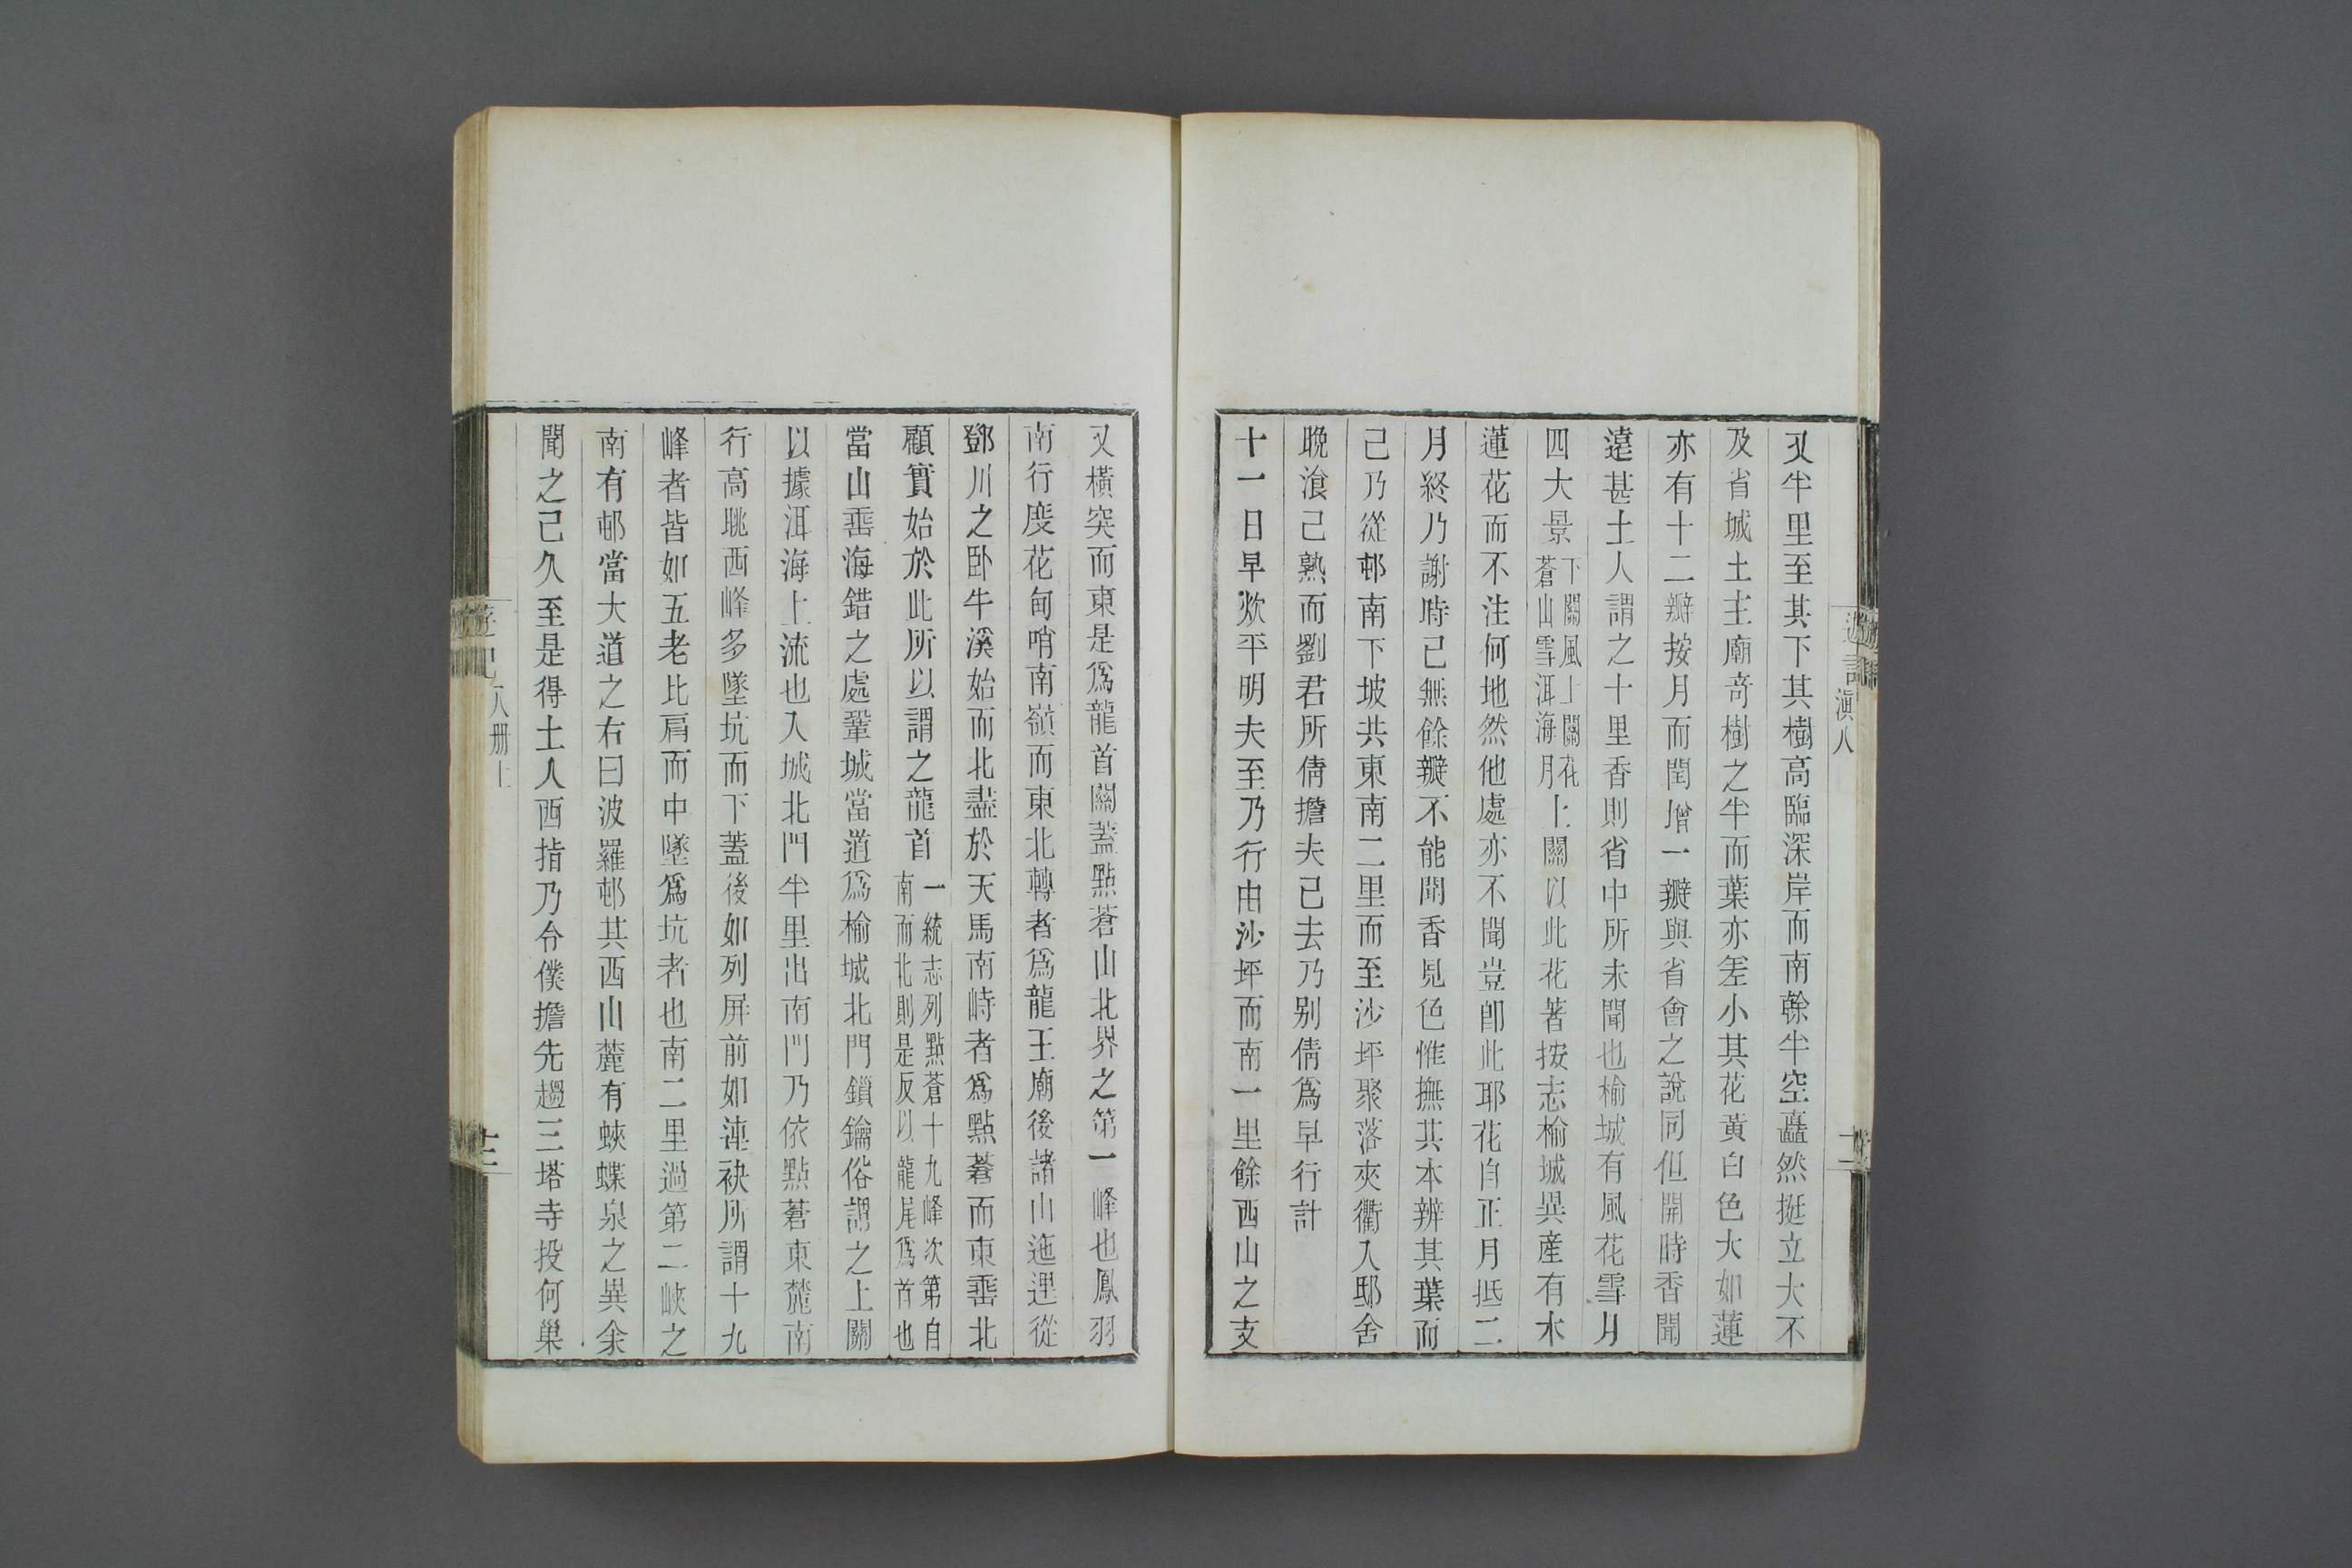 遊記
滇八
又半里至其下其樹高臨深岸而南榦半空矗然挺立大不
及省城土主廟奇樹之半而葉亦差小其花黃白色大如蓮
亦有十二瓣按月而閏增一瓣與省會之說同但開時香聞
遠甚土人謂之十里香則省中所未聞也榆城有風花雪月
四大景下關風上關花蒼山雪洱海月上關以此花著按志榆城異產有木
蓮花而不注何地然他處亦不聞豈卽此耶花自正月抵二
月終乃謝時已無餘瓣不能聞香見色惟撫其本辨其葉而
已乃從邨南下坡共東南二里而至沙坪聚落夾衢入邸舍
晚飡已熟而劉君所倩擔夫已去乃別倩爲早行計
十一日早炊平明夫至乃行由沙坪而南一里餘西山之支
又橫突而東是爲龍首關蓋點蒼山北界之第一峰也鳳羽
南行度花甸哨南嶺而東北轉者爲龍王廟後諸山迤邐從
鄧川之臥牛溪始而北盡於天馬南峙者爲點蒼而東垂北
顧實始於此所以謂之龍首一統志列點蒼十九峰次第自南而北則是反以龍尾爲首也
當山垂海錯之處鞏城當道爲榆城北門鎖鑰俗謂之上關
以據洱海上流也入城北門半里出南門乃依點蒼東麓南
行高眺西峰多墜坑而下蓋後如列屏前如連袂所謂十九
峰者皆如五老比肩而中墜爲坑者也南二里過第二峽之
南有邨當大道之右曰波羅邨其西山麓有蛺蝶泉之異余
聞之已久至是得土人西指乃令僕擔先趨三塔寺投何巢
遊記
八册上